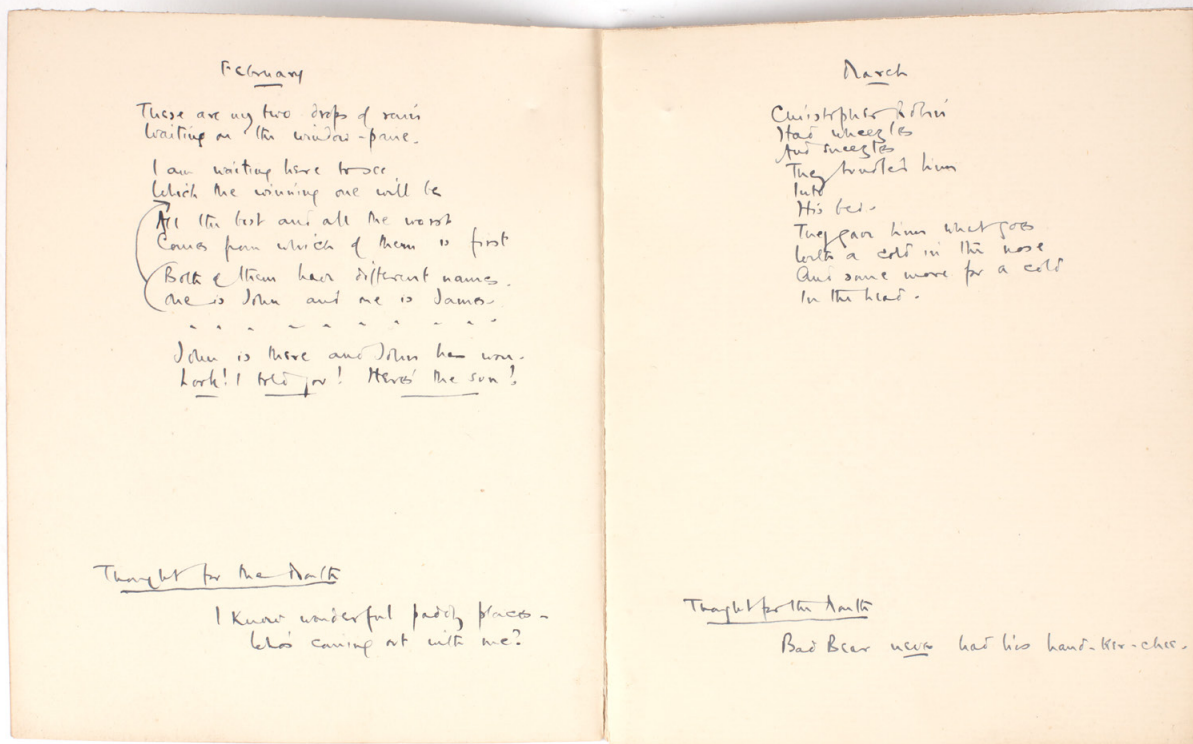 February
These are my two drops of rain
Waiting on the window-pane.
I am waiting here to see
Which the winning one will be
All the best and all the worst
Comes from which of them is first
Both of them have different names.
One is John and one is James.
John is there and John has won.
Look! I told you! Here's the sun!
Thought for the Month
I know wonderful paddly places –
Who's coming out with me?
March
Christopher Robin
Had wheezles
And sneezles
They bundled him
Into
His bed.
They gave him what goes
With a cold in the nose
And some more for a cold
In the head.
Thought for the Month
Bad Bear never had his hand-ker-chee.